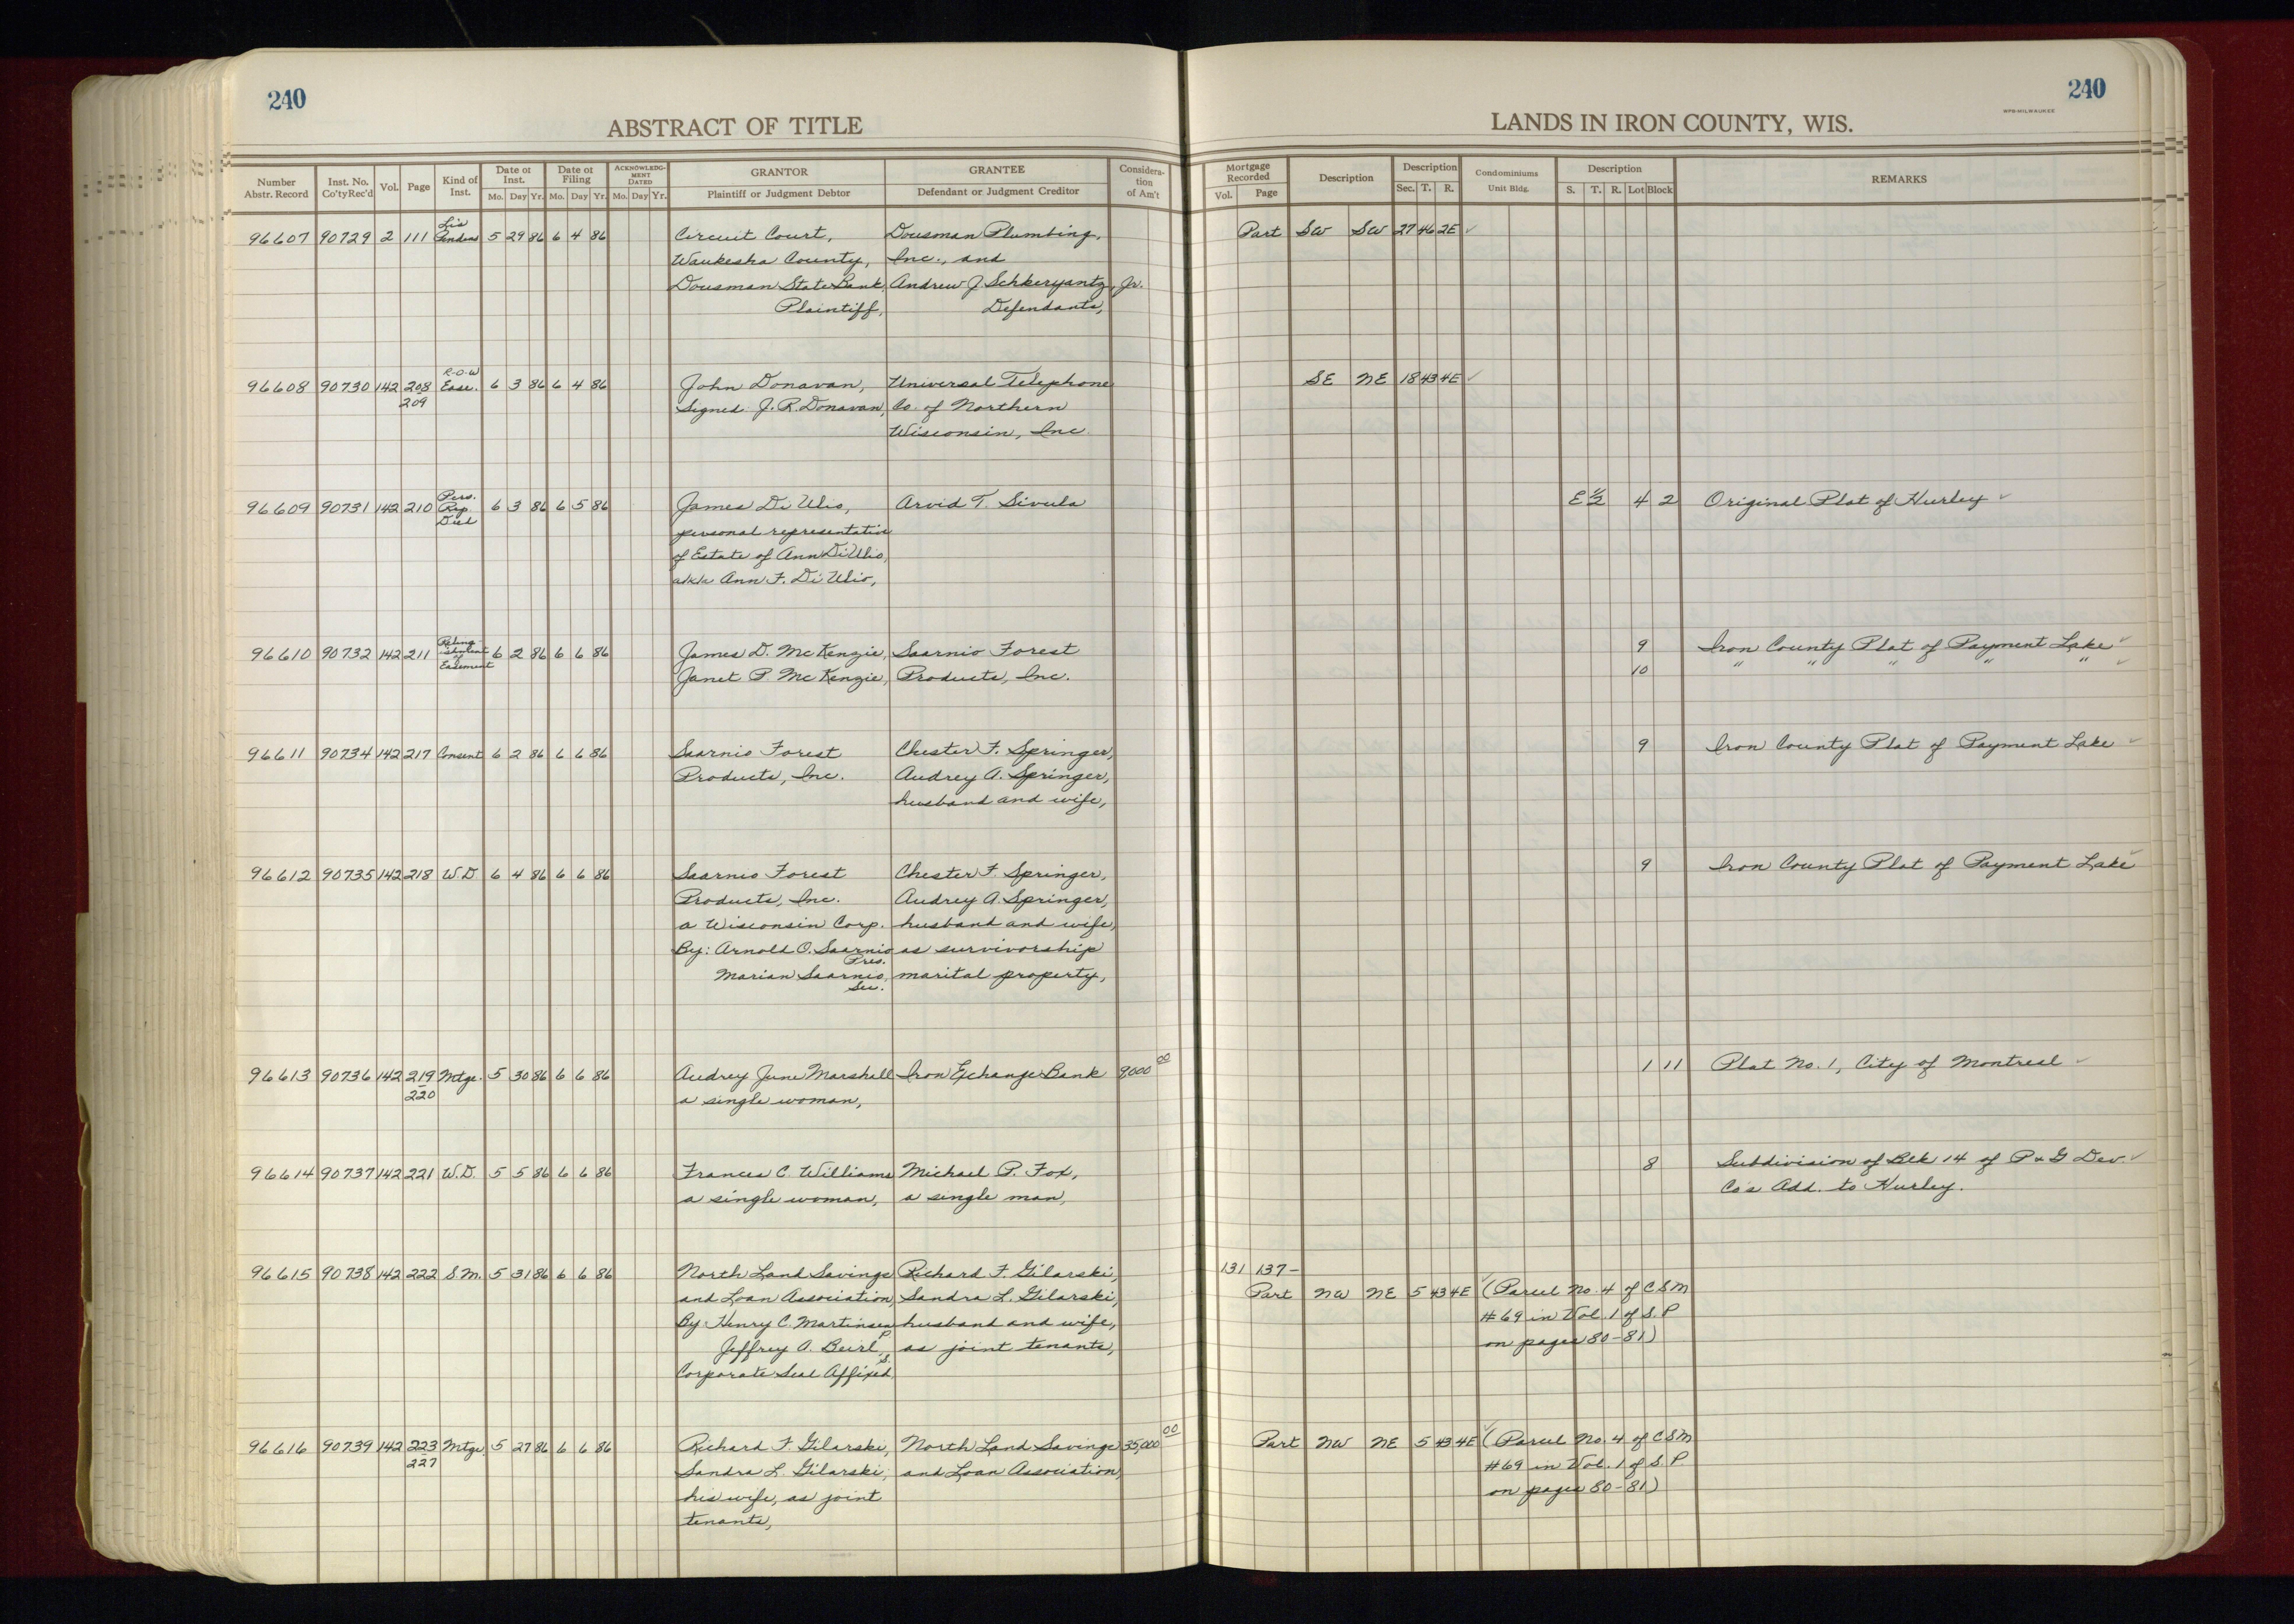 240
240
WPS-MILWAUKEE
ABSTRACT OF TITLE
LANDS IN IRON COUNTY, WIS.
Number Abstr. Record | Inst. No. Co'ty Rec'd | Vol. | Page | Kind of Inst. | Date of Inst. Mo. Day Yr. | Date of Filing Mo. Day Yr. | ACKNOWLEDGMENT DATED Mo. Day Yr. | GRANTOR Plaintiff or Judgment Debtor | GRANTEE Defendant or Judgment Creditor | Consideration of Am't | Mortgage Recorded Vol. Page | Description | Description Sec. T. R. | Condominiums Unit Bldg. | Description S. T. R. Lot Block | REMARKS
Lis
96607 90729 2 111 Pendens 5 29 86 6 4 86 Circuit Court, Dousman Plumbing, Part SW SW 27 46 2E ✓
Waukesha County, Inc., and
Dousman State Bank, Andrew J. Schkeryantz, Jr.
Plaintiff, Defendants,
R-O-W
96608 90730 142 208 Ease. 6 3 86 6 4 86 John Donavan, Universal Telephone SE NE 18 43 4E ✓
209 Signed: J. R. Donavan, Co. of Northern
Wisconsin, Inc.
Pers.
96609 90731 142 210 Rep. 6 3 86 6 5 86 James Di Ulio, Arvid T. Sivula E ½ 4 2 Original Plat of Hurley ✓
Deed personal representative
of Estate of Ann Di Ulio,
a/k/a Ann F. Di Ulio,
Relinq-
96610 90732 142 211 ishment of 6 2 86 6 6 86 James D. McKenzie, Saarnio Forest 9 Iron County Plat of Payment Lake ✓
Easement Janet P. McKenzie, Products, Inc. 10 " " " " " ✓
96611 90734 142 217 Consent 6 2 86 6 6 86 Saarnio Forest Chester F. Springer, 9 Iron County Plat of Payment Lake ✓
Products, Inc. Audrey A. Springer,
husband and wife,
96612 90735 142 218 W.D. 6 4 86 6 6 86 Saarnio Forest Chester F. Springer, 9 Iron County Plat of Payment Lake ✓
Products, Inc. Audrey A. Springer,
a Wisconsin Corp. husband and wife,
By: Arnold O. Saarnio as survivorship
Pres.
Marian Saarnio, marital property,
Sec.
96613 90736 142 219 Mtge. 5 30 86 6 6 86 Audrey June Marshall Iron Exchange Bank 9000 00 1 11 Plat No. 1, City of Montreal ✓
220 a single woman,
96614 90737 142 221 W.D. 5 5 86 6 6 86 Frances C. Williams Michael P. Fox, 8 Subdivision of Blk 14 of P & G Dev. ✓
a single woman, a single man, Co's Add. to Hurley.
96615 90738 142 222 S.M. 5 31 86 6 6 86 North Land Savings Richard F. Gilarski, 131 137-
and Loan Association, Sandra L. Gilarski, Part NW NE 5 43 4E ✓ (Parcel No. 4 of CSM
By: Henry C. Martinsen husband and wife, #69 in Vol. 1 of S.P.
P.
Jeffrey A. Beirl, as joint tenants, on pages 80-81)
S.
Corporate Seal Affixed.
96616 90739 142 223 Mtge. 5 27 86 6 6 86 Richard F. Gilarski, North Land Savings 35,000 00 Part NW NE 5 43 4E ✓ (Parcel No. 4 of CSM
227 Sandra L. Gilarski, and Loan Association, #69 in Vol. 1 of S.P.
his wife, as joint on pages 80-81)
tenants,